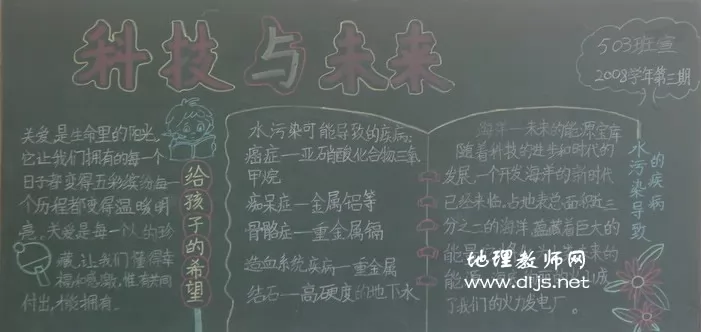 科技与未来
503班宣
2008学年第三期
关爱,是生命里的阳光,
它让我们拥有的每一个
日子都变得五彩缤纷每一
个历程都变得温暖明
亮。关爱是每一个人的珍
藏,让我们懂得幸
福和感激,惟有共同
付出,才能拥有。
给孩子的希望
水污染可能导致的疾病:
癌症—亚硝酸化合物三氯
甲烷
痴呆症—金属铝等
骨骼症—重金属镉
造血系统疾病—重金属
结石—高硬度的地下水
海洋—未来的能源宝库
随着科技的进步和时代的
发展,一个开发海洋的新时代
已经来临,占地表总面积近三
分之二的海洋,蕴藏着巨大的
能量
能源
了我们的火力发电厂。
水污染导致
的疾病
地理教师网
www.dljs.net